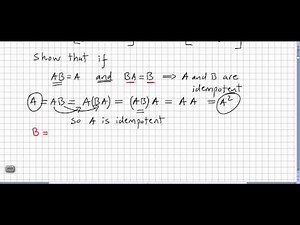 Show that if
AB = A and BA = B ⟹ A and B are
idempotent
A = AB = A(BA) = (AB)A = AA = A²
So A is idempotent
B =